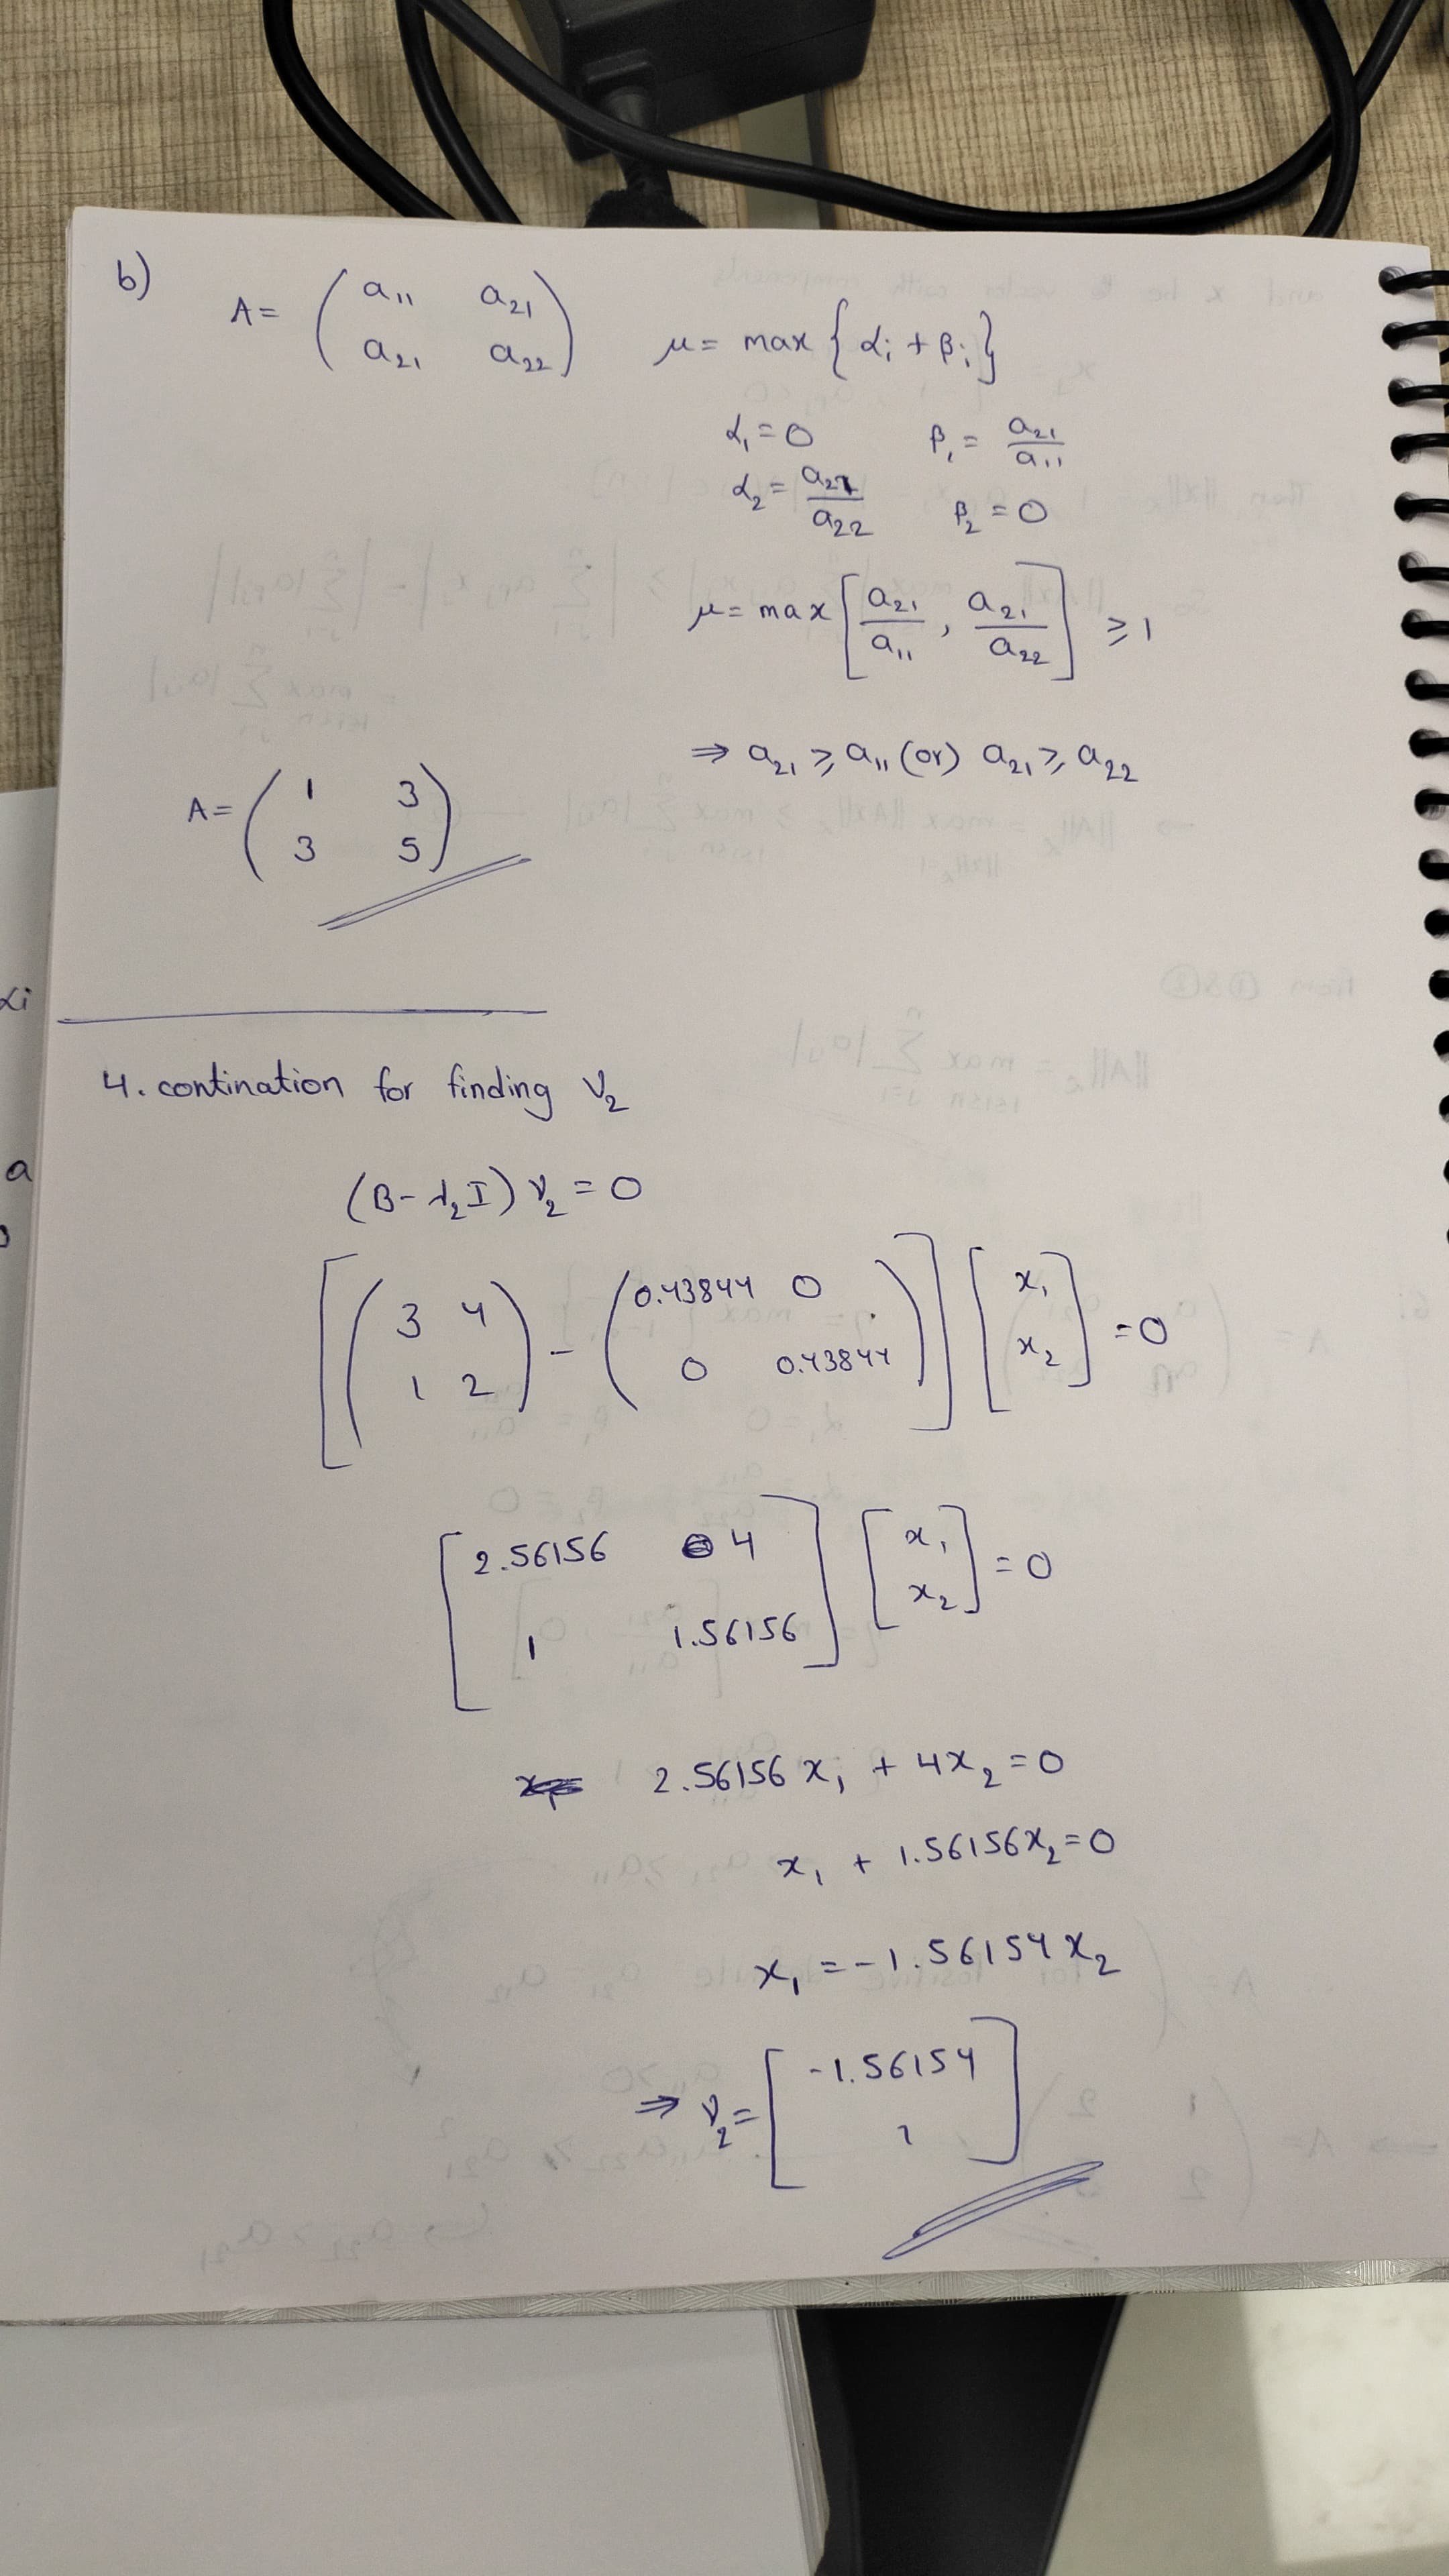 b)
A = ( a₁₁ a₂₁
a₂₁ a₂₂ )
μ = max { αᵢ + βᵢ }
α₁ = 0 β₁ = a₂₁/a₁₁
α₂ = a₂₁/a₂₂ β₂ = 0
μ = max [ a₂₁/a₁₁ , a₂₁/a₂₂ ] ⩾ 1
⇒ a₂₁ ⩾ a₁₁ (or) a₂₁ ⩾ a₂₂
A = ( 1 3
3 5 )
αi
a
4. contination for finding V₂
(B - λ₂I) V₂ = 0
[ ( 3 4
1 2 ) - ( 0.43844 0
0 0.43844 ) ] [ x₁
x₂ ] = 0
[ 2.56156 4
1 1.56156 ] [ x₁
x₂ ] = 0
2.56156 x₁ + 4x₂ = 0
x₁ + 1.56156x₂ = 0
x₁ = -1.56154 x₂
⇒ V₂ = [ -1.56154
1 ]